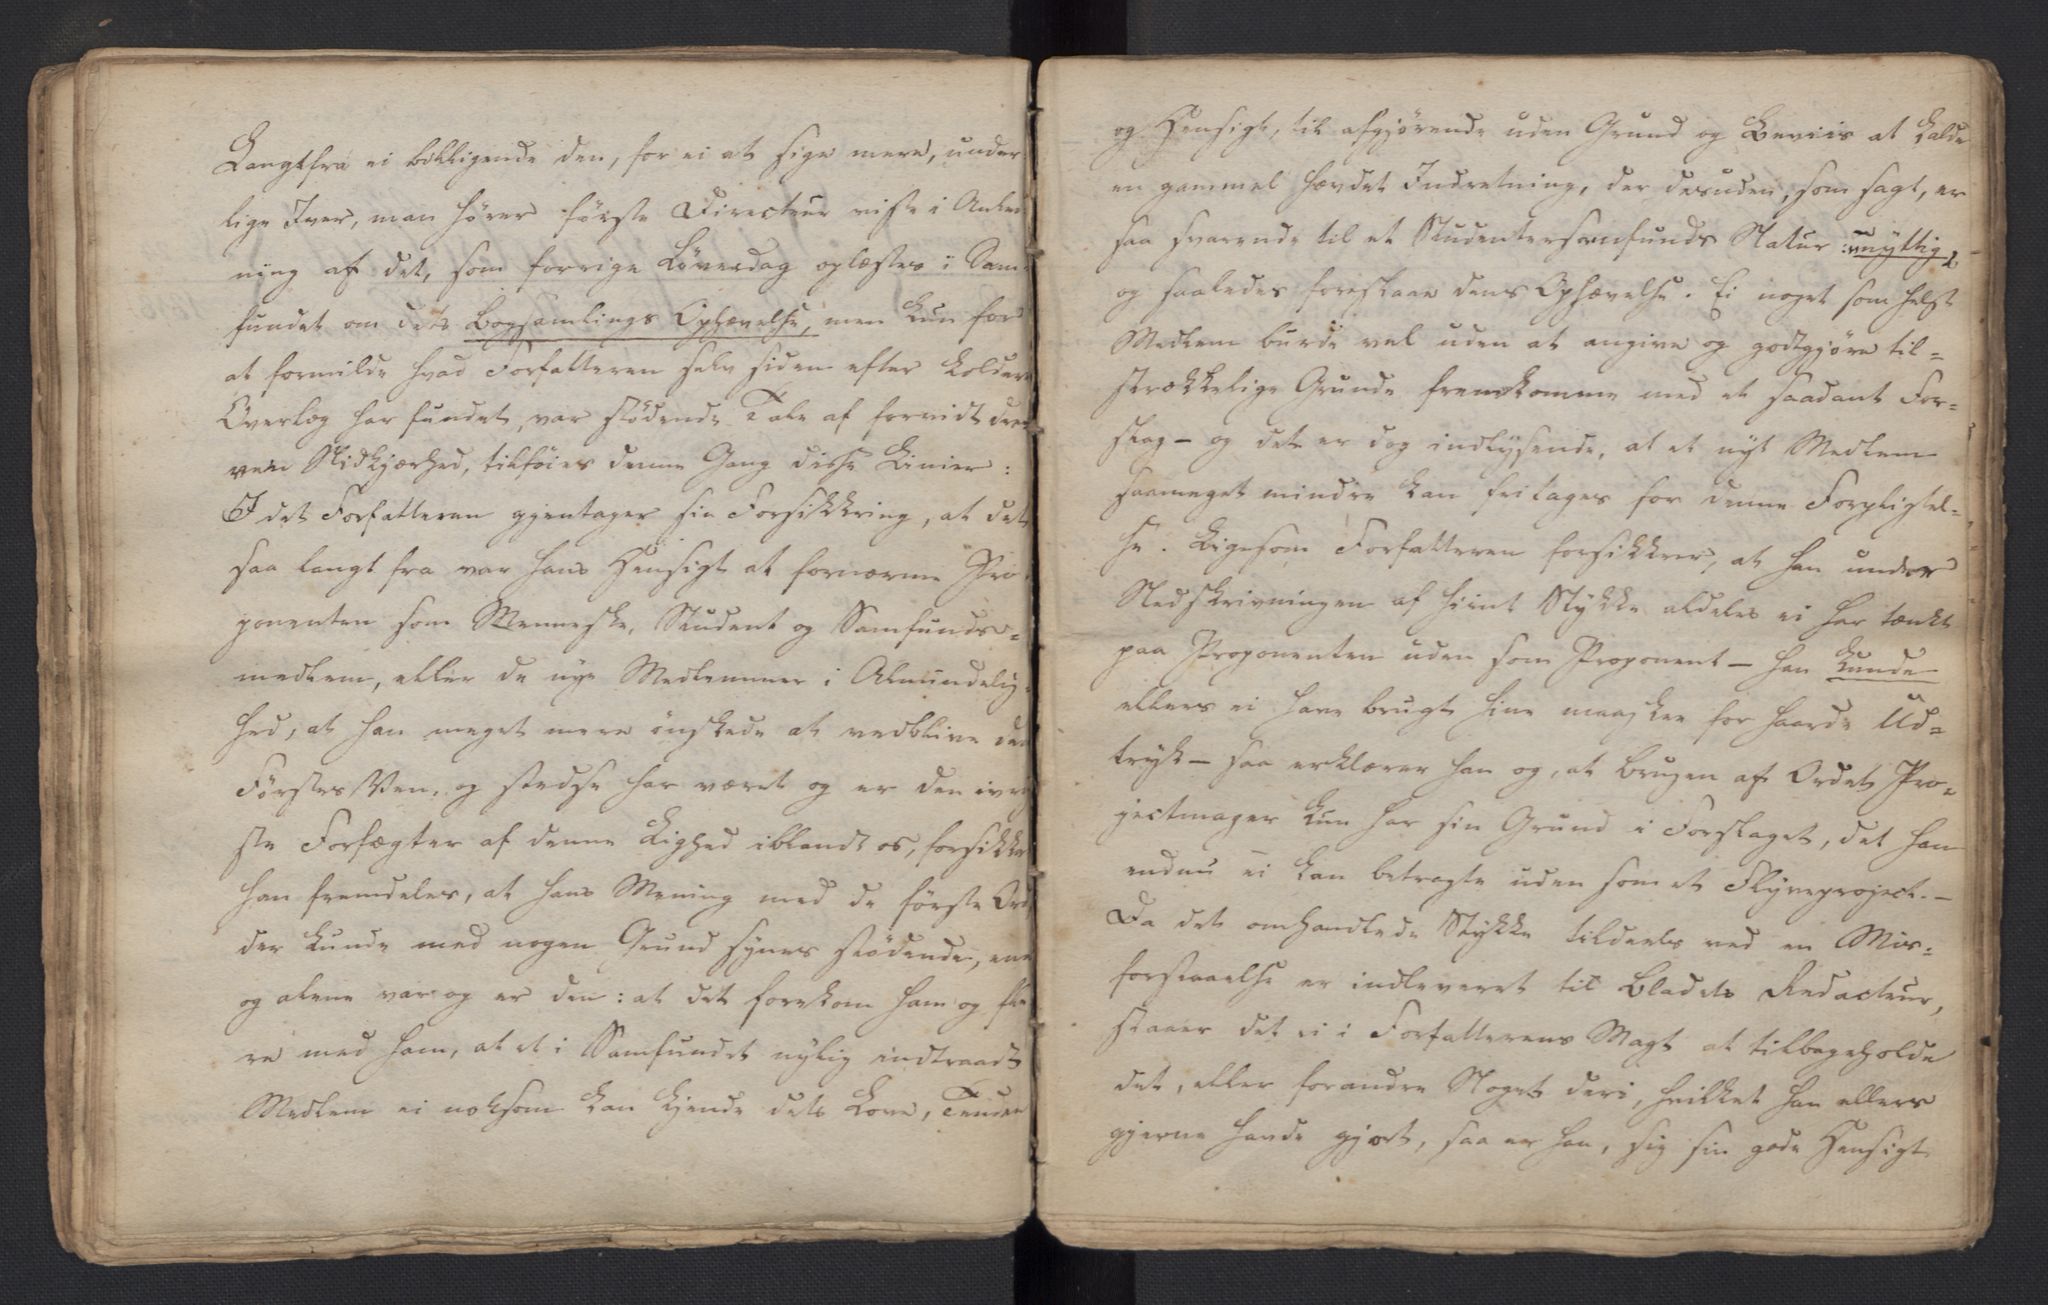 Langtfra ei billigende den, for ei at sige mere, under
lige Iver, man hører første Directeur viste i Anled
ning af det, som forrige Løverdag oplæstes i Sam¬
fundet om dets Bogsamlings Ophævelse, men kun for
at formilde hvad Forfatteren selv siden efter koldere
Overlæg har fundet, var stødende Tale af forvidt dre
ven Nidkjærhed, tilføies denne Gang disse Linier:
I det Forfatteren gjentager sin Forsikkring, at det
saa langt fra var hans Hensigt at fornærme Pro
ponenten som Menneske, Student og Samfunds¬
medlem, eller de nye Medlemmer i Almindelig¬
hed, at han meget mere ønskede at vedblive den
Førstes Ven, og stedse har været og er den ivrig
ste Forfægter af denne Lighed iblandt os, forsikkre
han fremdeles, at hans Mening med de første Ord
der kunde med nogen Grund synes stødende, ene
og alene var og er den: at det forekom ham og fle
re med ham, at et i Samfundet nylig indtraadt
Medlem ei noksom kan kjende dets Love, Tenden
og Hensigt, til afgjørende uden Grund og Beviis at kalde
en gammel hævdet Indretning, der desuden, som sagt, er
saa svarende til et Studentersamfunds Natur: unyttig,
og saaledes foreslaae dens Ophævelse. Ei noget som helst
Medlem burde vel uden at angive og godtgjøre til¬
strækkelige Grunde fremkomme med et saadant For¬
slag – og det er dog indlysende, at et nyt Medlem
saameget mindre kan fritages for denne Forpligtel¬
se. Ligesom Forfatteren forsikkrer, at han under
Nedskrivningen af hiint Stykke aldeles ei har tænkt
paa Proponenten uden som Proponent – han kunde
ellers ei have brugt hine maaskee for haarde Ud¬
tryk – saa erklærer han og, at Brugen af Ordet Pro¬
jectmager kun har sin Grund i Forslaget, det han
endnu ei kan betragte uden som et Flyveproject. –
Da det omhandlede Stykke tildeels ved en Mis¬
forstaaelse er indleveret til Bladets Redacteur,
staaer det ei i Forfatterens Magt at tilbageholde
det, eller forandre Noget deri, hvilket han ellers
gjerne havde gjort, saa er han, sig sin gode Hensigt